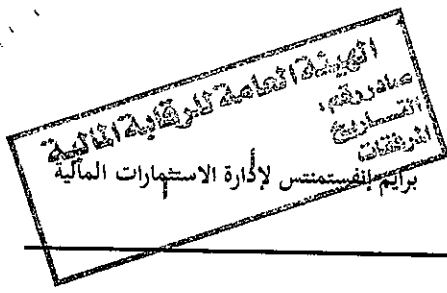 الهيئة العامة للرقابة المالية
صادر رقم:
التاريخ
المرفقات
برايم إنفستمنتس لإدارة الاستثمارات المالية